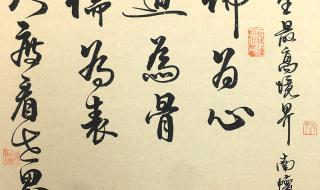 生最高境界 南懷
佛为心
道為骨
儒為表
大度看世界